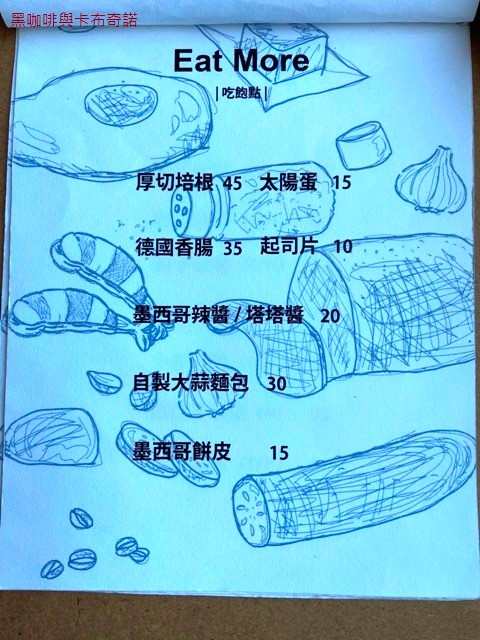 黑咖啡與卡布奇諾
Eat More
| 吃飽點 |
厚切培根 45 太陽蛋 15
德國香腸 35 起司片 10
墨西哥辣醬 / 塔塔醬 20
自製大蒜麵包 30
墨西哥餅皮 15